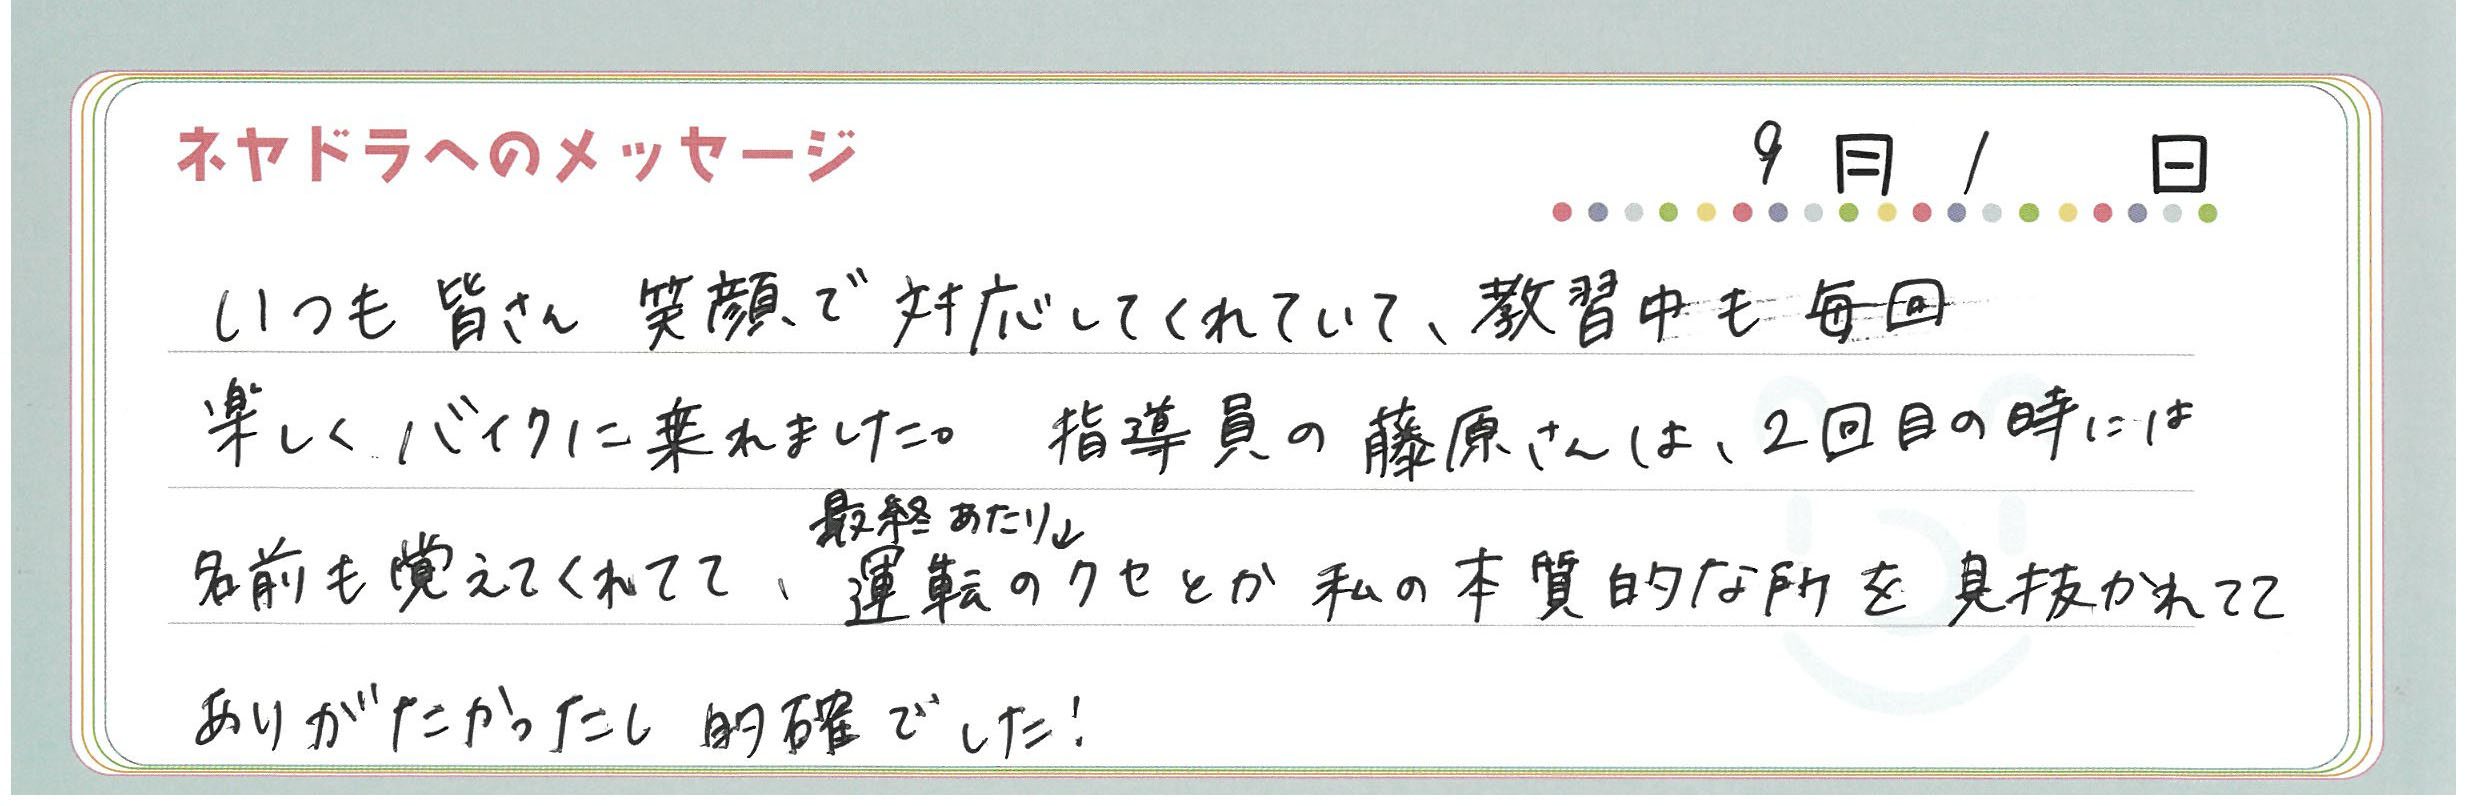 ネヤドラへのメッセージ
9月1日
いつも皆さん 笑顔で対応してくれていて、教習中も毎回
楽しくバイクに乗れました。 指導員の藤原さんは、2回目の時には
最終あたり↓
名前も覚えてくれてて、運転のクセとか私の本質的な所を見抜かれてて
ありがたかったし的確でした!